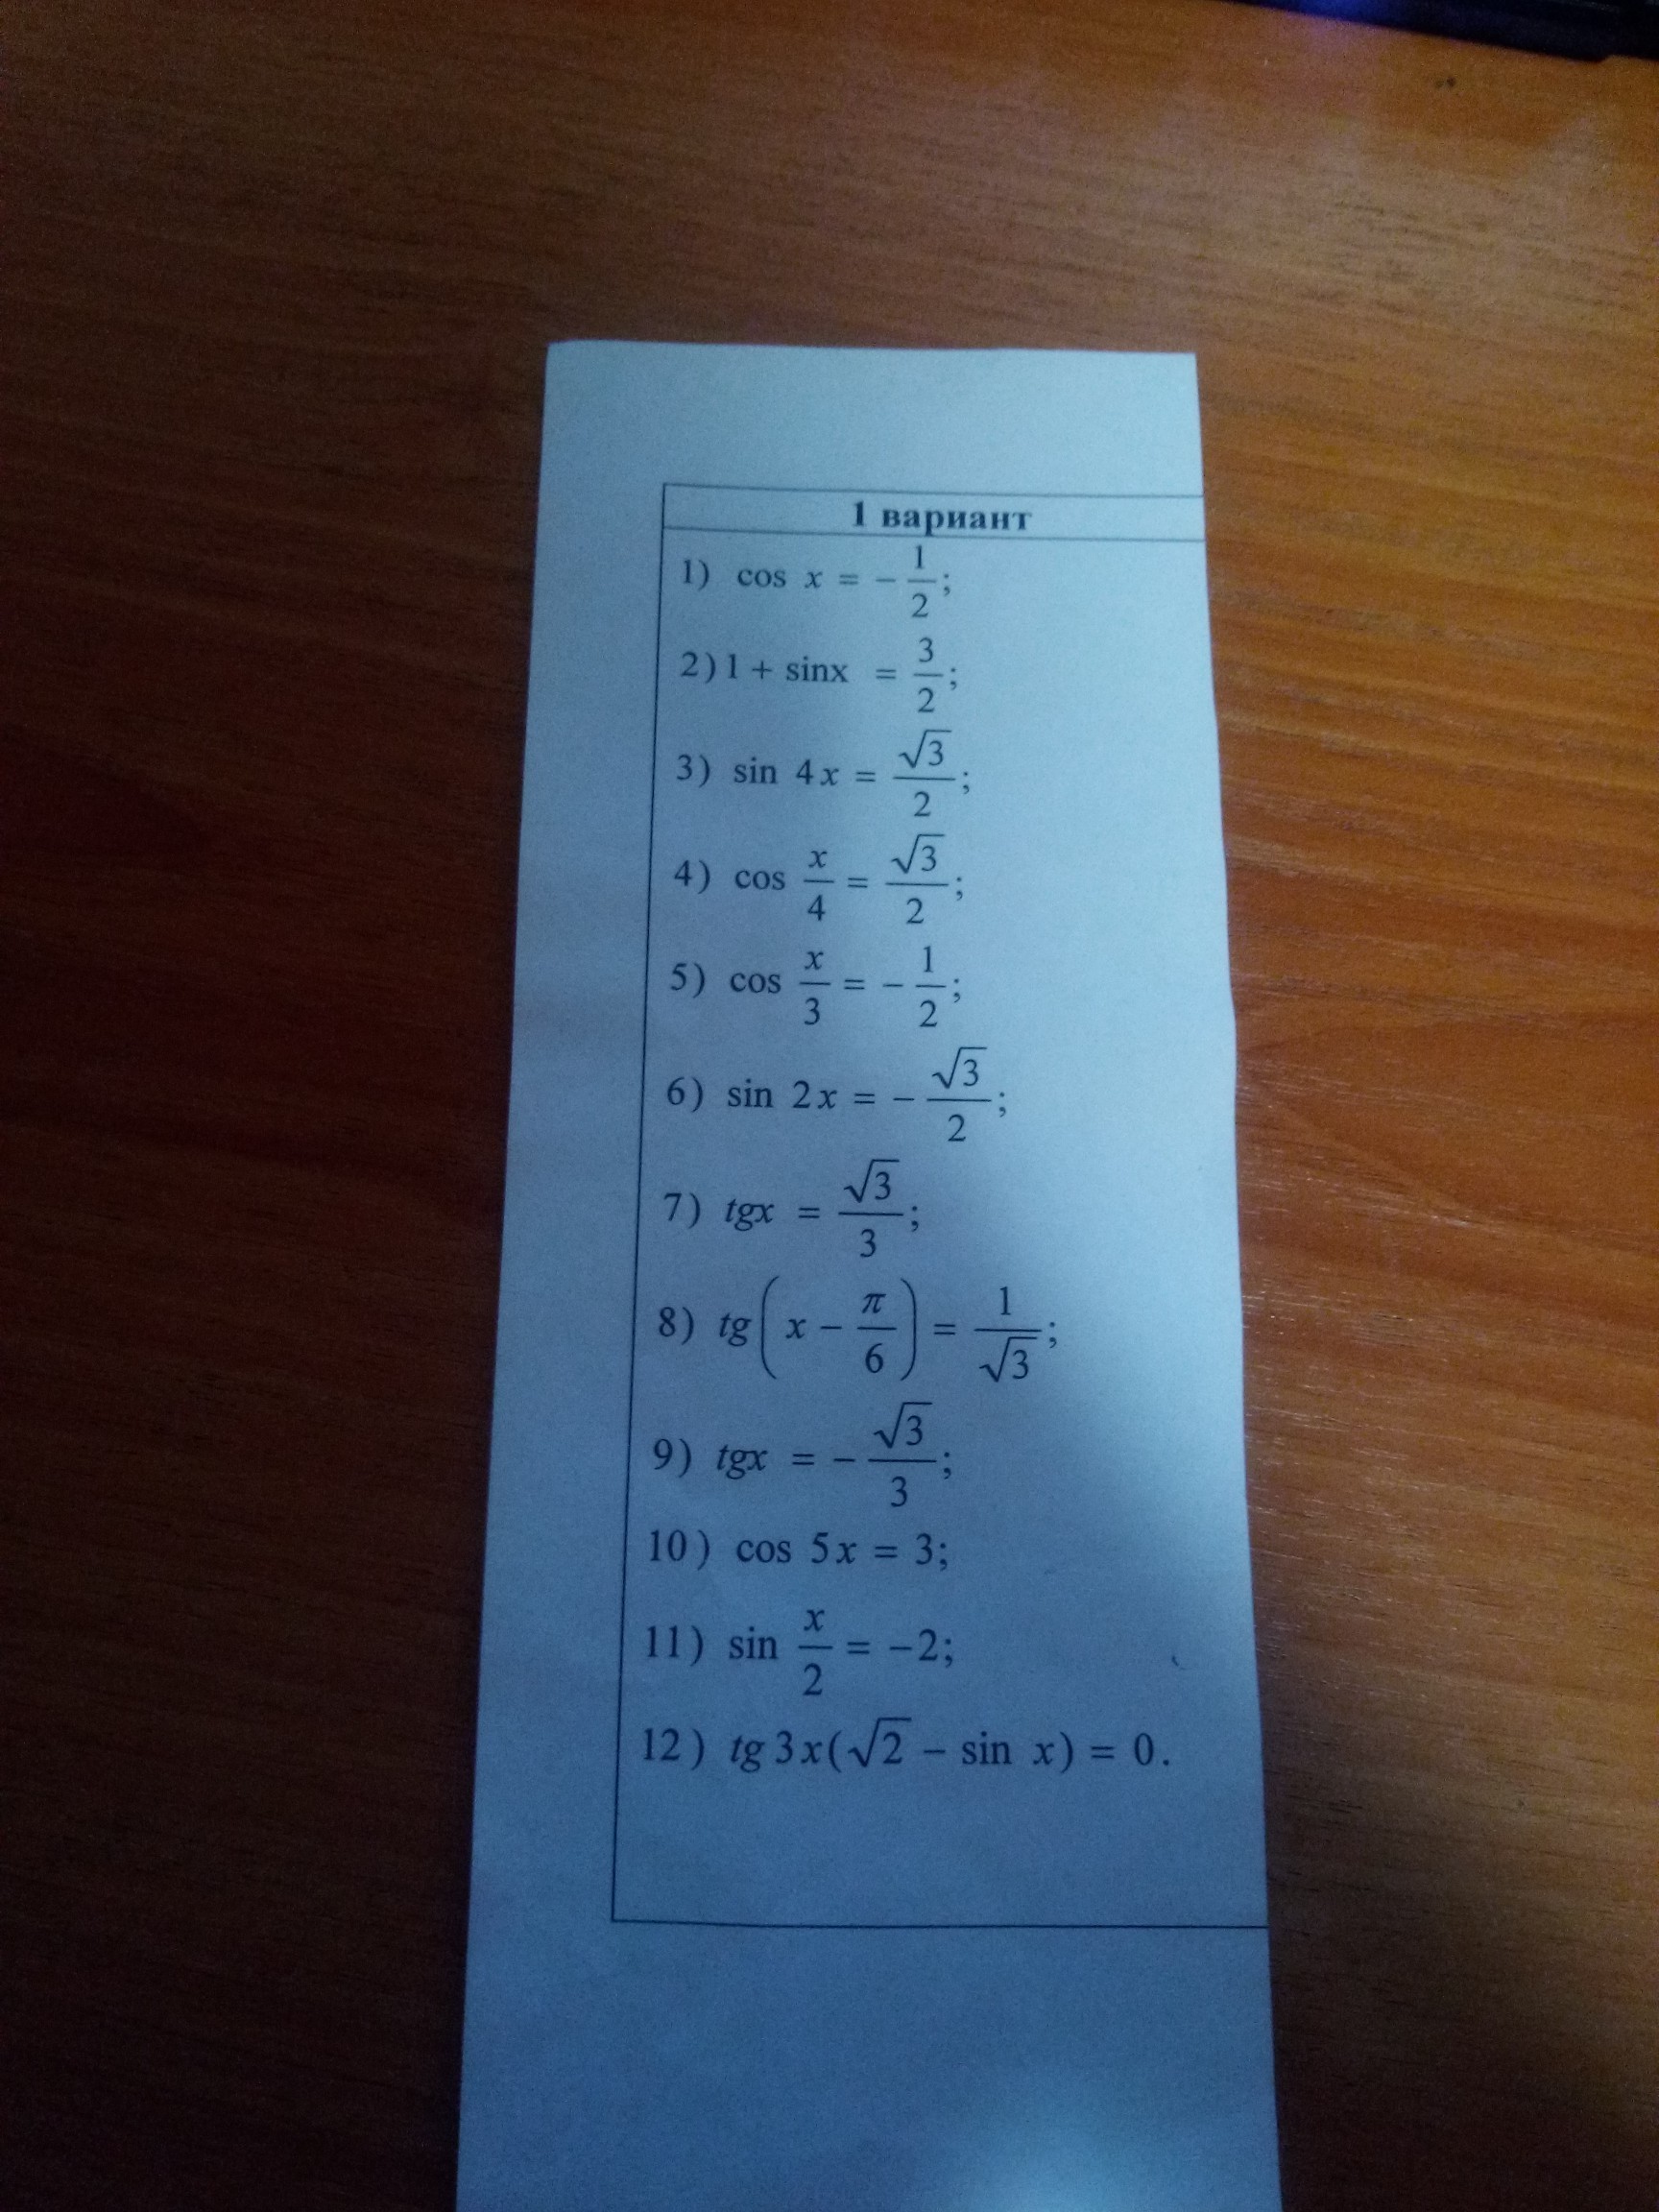 1 вариант
1) cos x = -1/2;
2) 1 + sinx = 3/2;
3) sin 4x = √3/2;
4) cos x/4 = √3/2;
5) cos x/3 = -1/2;
6) sin 2x = -√3/2;
7) tgx = √3/3;
8) tg(x - π/6) = 1/√3;
9) tgx = -√3/3;
10) cos 5x = 3;
11) sin x/2 = -2;
12) tg 3x(√2 - sin x) = 0.